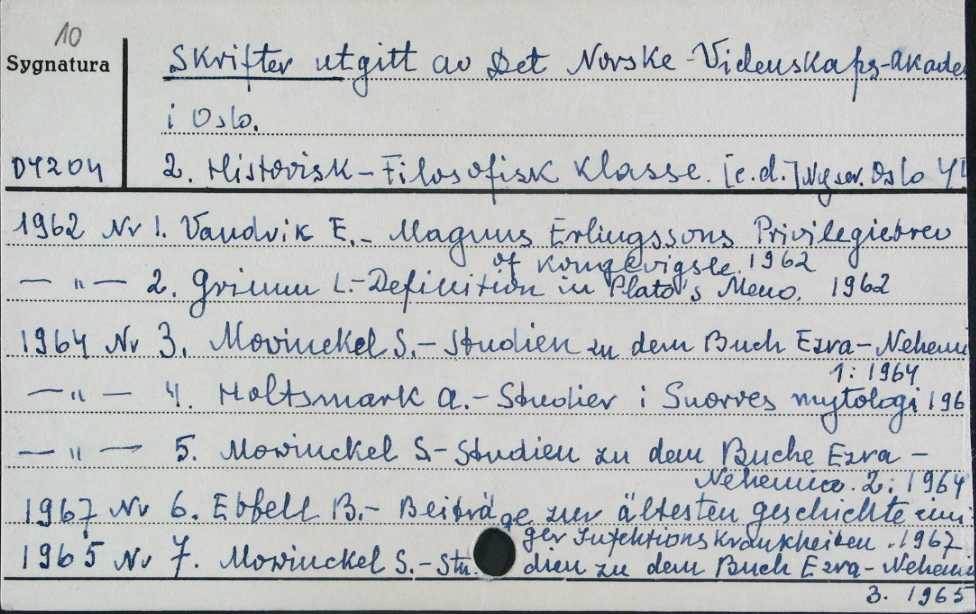 10
Sygnatura
Skrifter utgitt av Det Norske-Videnskaps-Akade
i Oslo.
D4204
2. Historisk-Filosofisk Klasse. [c.d.] Ny ser. Oslo
1962 Nr 1. Vandvik E.- Magnus Erlingssons Privilegiebrev
of Kongevigsle. 1962
— " — 2. Grimm L.-Definition in Plato's Meno. 1962
1964 Nr 3. Mowinckel S.- Studien zu dem Buch Ezra-Nehem
1: 1964
— " — 4. Holtsmark A.- Studier i Snorres mytologi 196
— " — 5. Mowinckel S.- Studien zu dem Buche Ezra -
Nehemia. 2: 1964
1967 Nr 6. Ebbell B.- Beiträge zur ältesten geschichte eini
ger Infektionskrankheiten. 1967.
1965 Nr 7. Mowinckel S.- Studien zu dem Buch Ezra-Nehem
3. 1965